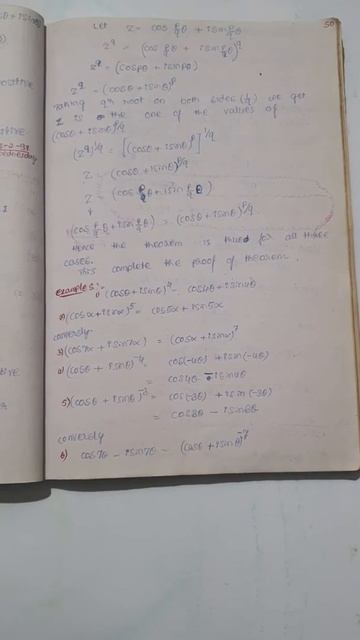 50
Let Z = cos p/q θ + i sin p/q θ
Z^q = (cos p/q θ + i sin p/q θ)^q
Z^q = (cos pθ + i sin pθ)
Z^q = (cosθ + i sinθ)^p
Taking qth root on both sides (1/q) we get
Z is the one of the values of
(cosθ + i sinθ)^p/q
(Z^q)^1/q = [(cosθ + i sinθ)^p]^1/q
Z = (cosθ + i sinθ)^p/q
Z = (cos p/q θ + i sin p/q θ)
(cos p/q θ + i sin p/q θ) = (cosθ + i sinθ)^p/q
Hence the theorem is true for all three
cases.
This complete the proof of theorem.
examples:- 1) (cosθ + i sinθ)^4 = cos4θ + i sin4θ
2) (cosx + i sinx)^5 = cos5x + i sin5x
conversly
3) (cos7x + i sin7x) = (cosx + i sinx)^7
4) (cosθ + i sinθ)^-4 = cos(-4θ) + i sin(-4θ)
= cos4θ - i sin4θ
5) (cosθ + i sinθ)^-3 = cos(-3θ) + i sin(-3θ)
= cos3θ - i sin3θ
conversly
6) cos7θ - i sin7θ = (cosθ + i sinθ)^-7